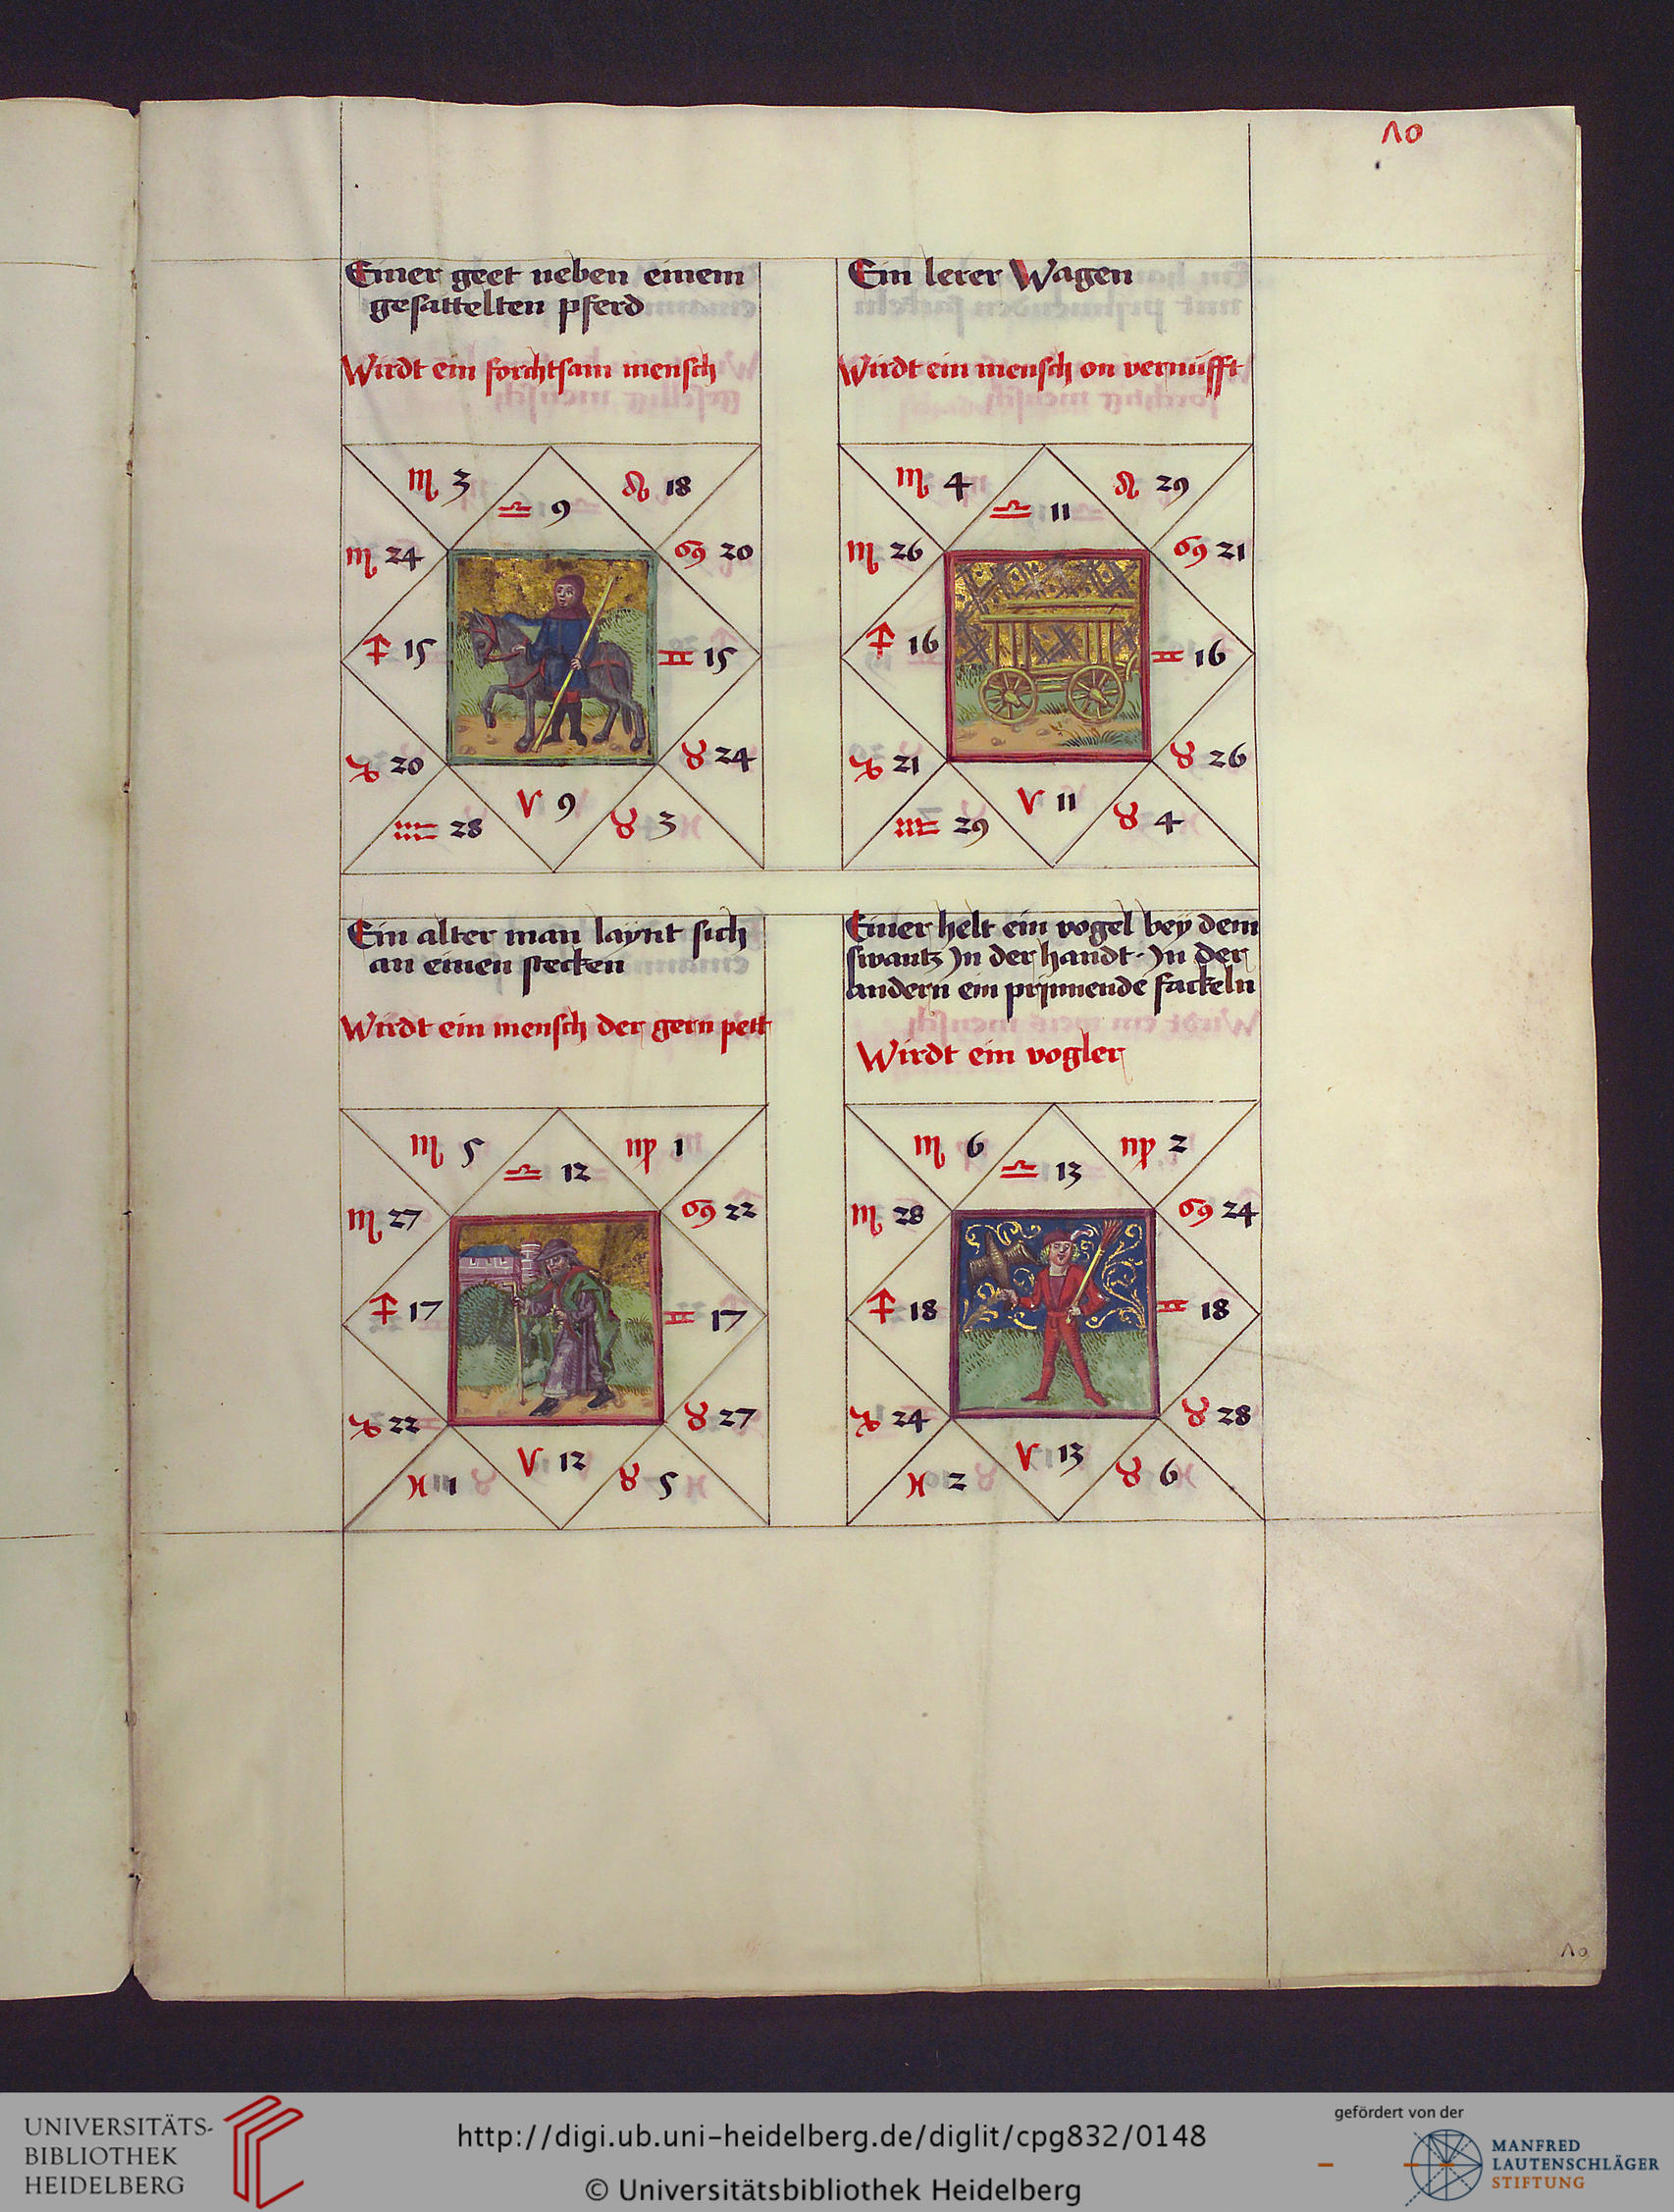 10
Einer geet neben einem
gesattelten pferd
Wirdt ein forchtsam mensch
♏ 3
♎ 9
♌ 18
♏ 24
♋ 20
♐ 15
♊ 15
♑ 20
♉ 24
♒ 28
♈ 9
♉ 3
Ein lerer Wagen
Wirdt ein mensch on vernufft
♏ 4
♎ 11
♌ 29
♏ 26
♋ 21
♐ 16
♊ 16
♑ 21
♉ 26
♒ 29
♈ 11
♉ 4
Ein alter man laynt sich
an einen stecken
Wirdt ein mensch der gern pett
♏ 5
♎ 12
♍ 1
♏ 27
♋ 22
♐ 17
♊ 17
♑ 22
♉ 27
♓ 1
♈ 12
♉ 5
Einer helt ein vogel bey dem
swantz In der handt · In der
andern ein prinnende fackeln
Wirdt ein vogler
♏ 6
♎ 13
♍ 2
♏ 28
♋ 24
♐ 18
♊ 18
♑ 24
♉ 28
♓ 2
♈ 13
♉ 6
10
UNIVERSITÄTS-
BIBLIOTHEK
HEIDELBERG
http://digi.ub.uni-heidelberg.de/diglit/cpg832/0148
© Universitätsbibliothek Heidelberg
gefördert von der
MANFRED
LAUTENSCHLÄGER
STIFTUNG